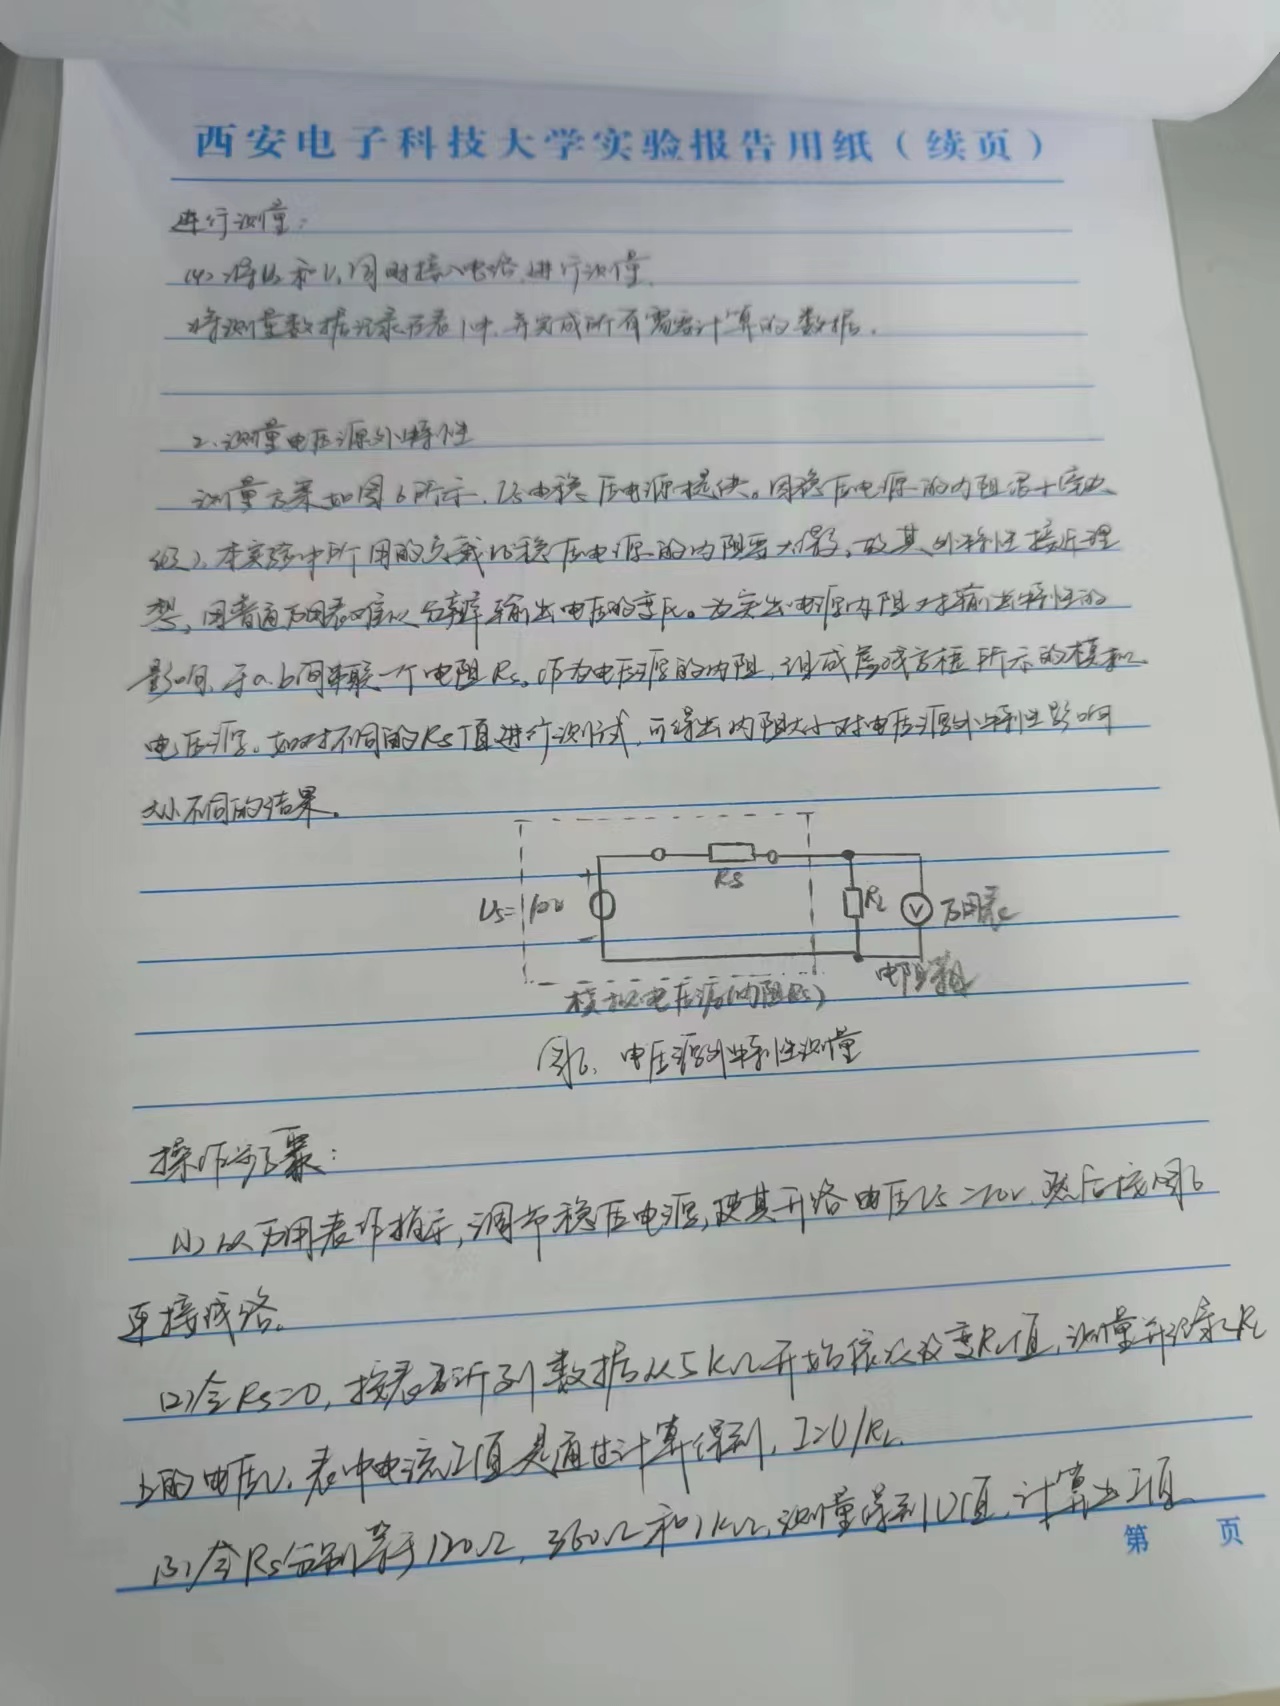 西安电子科技大学实验报告用纸（续页）
进行测量；
(4) 将U₂和U₁同时接入电路，进行测量。
将测量数据记录于表1中，并完成所有需要计算的数据。
2、测量电压源外特性
测量方案如图6所示，Us由稳压电源提供。因稳压电源的内阻
本实验中所用的负载比稳压电源的内阻要大得多，故其外特性接近理
想，用普通万用表难以分辨输出电压的变化。为突出电源内阻对输出特性的
影响，于a、b间串联一个电阻Rs。作为电压源的内阻，组成虚线方框所示的模拟
电压源。如对不同的Rs值进行测试，可得出内阻大小对电压源外特性影响
大小不同的结果。
Rs
+
Us=10V
RL
V
万用表
-
电阻箱
模拟电压源(内阻Rs)
图6、电压源外特性测量
操作步骤：
(1) 以万用表作指示，调节稳压电源，使其开路电压Us=10V，然后按图6
连接线路。
(2) 令Rs=0，按表所列数据从5kΩ开始依次改变RL值，测量并记录RL
的电压U，表中电流I值是通过计算得到，I=U/RL。
(3) 令Rs分别等于120Ω，360Ω和1kΩ，测量得到U值，计算出I值。
第 页